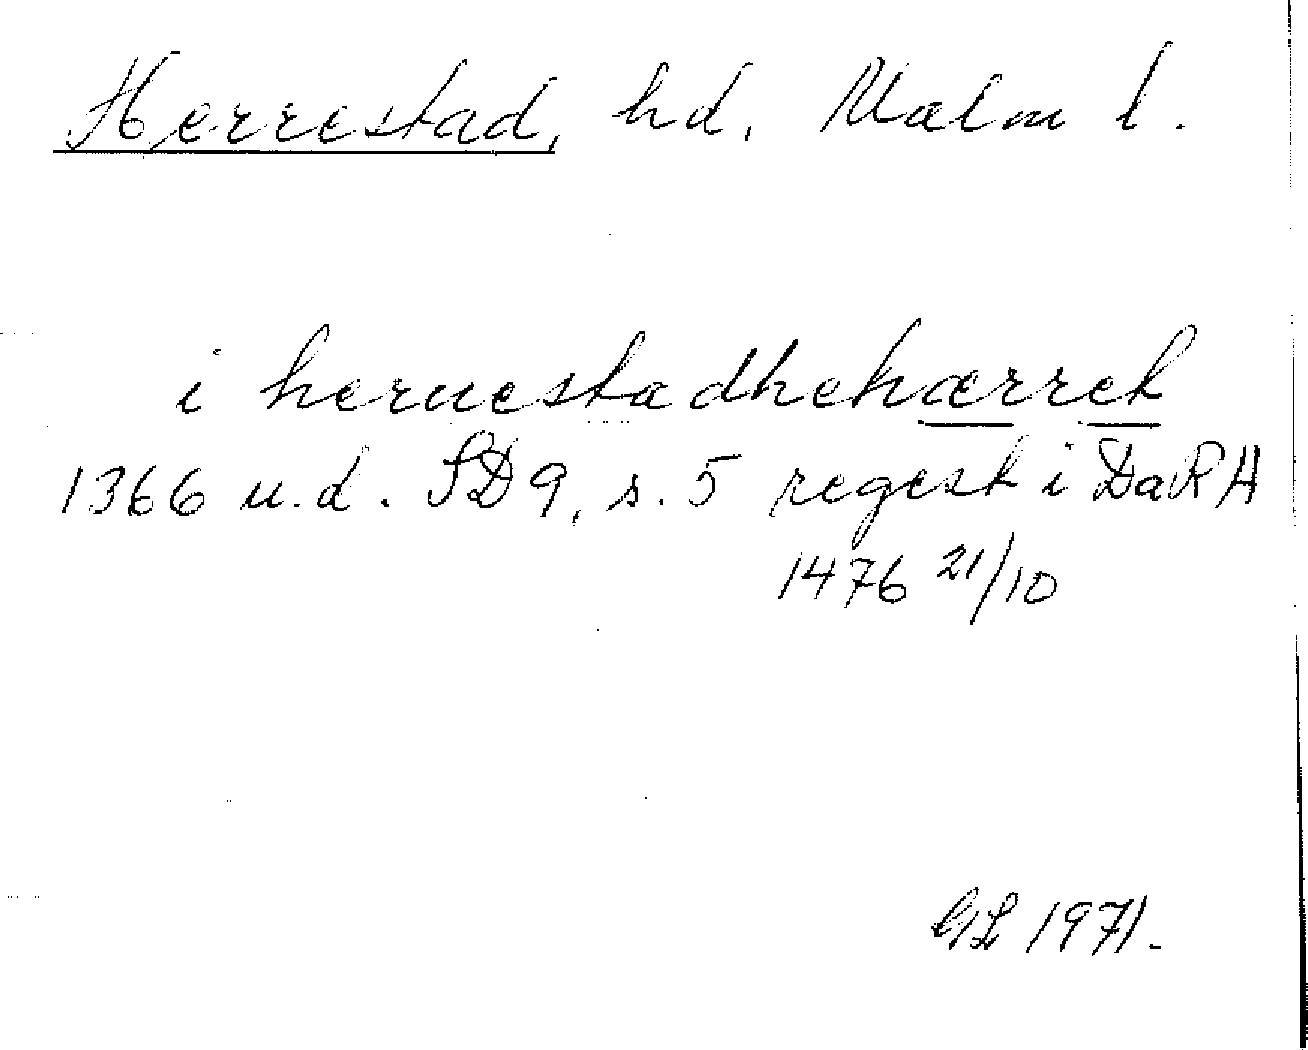 Herrestad, hd. Malm l.
i heruestadhehærret
1366 u.d. SD 9, s. 5 regest i DaRA
1476 21/10
GL 1971.